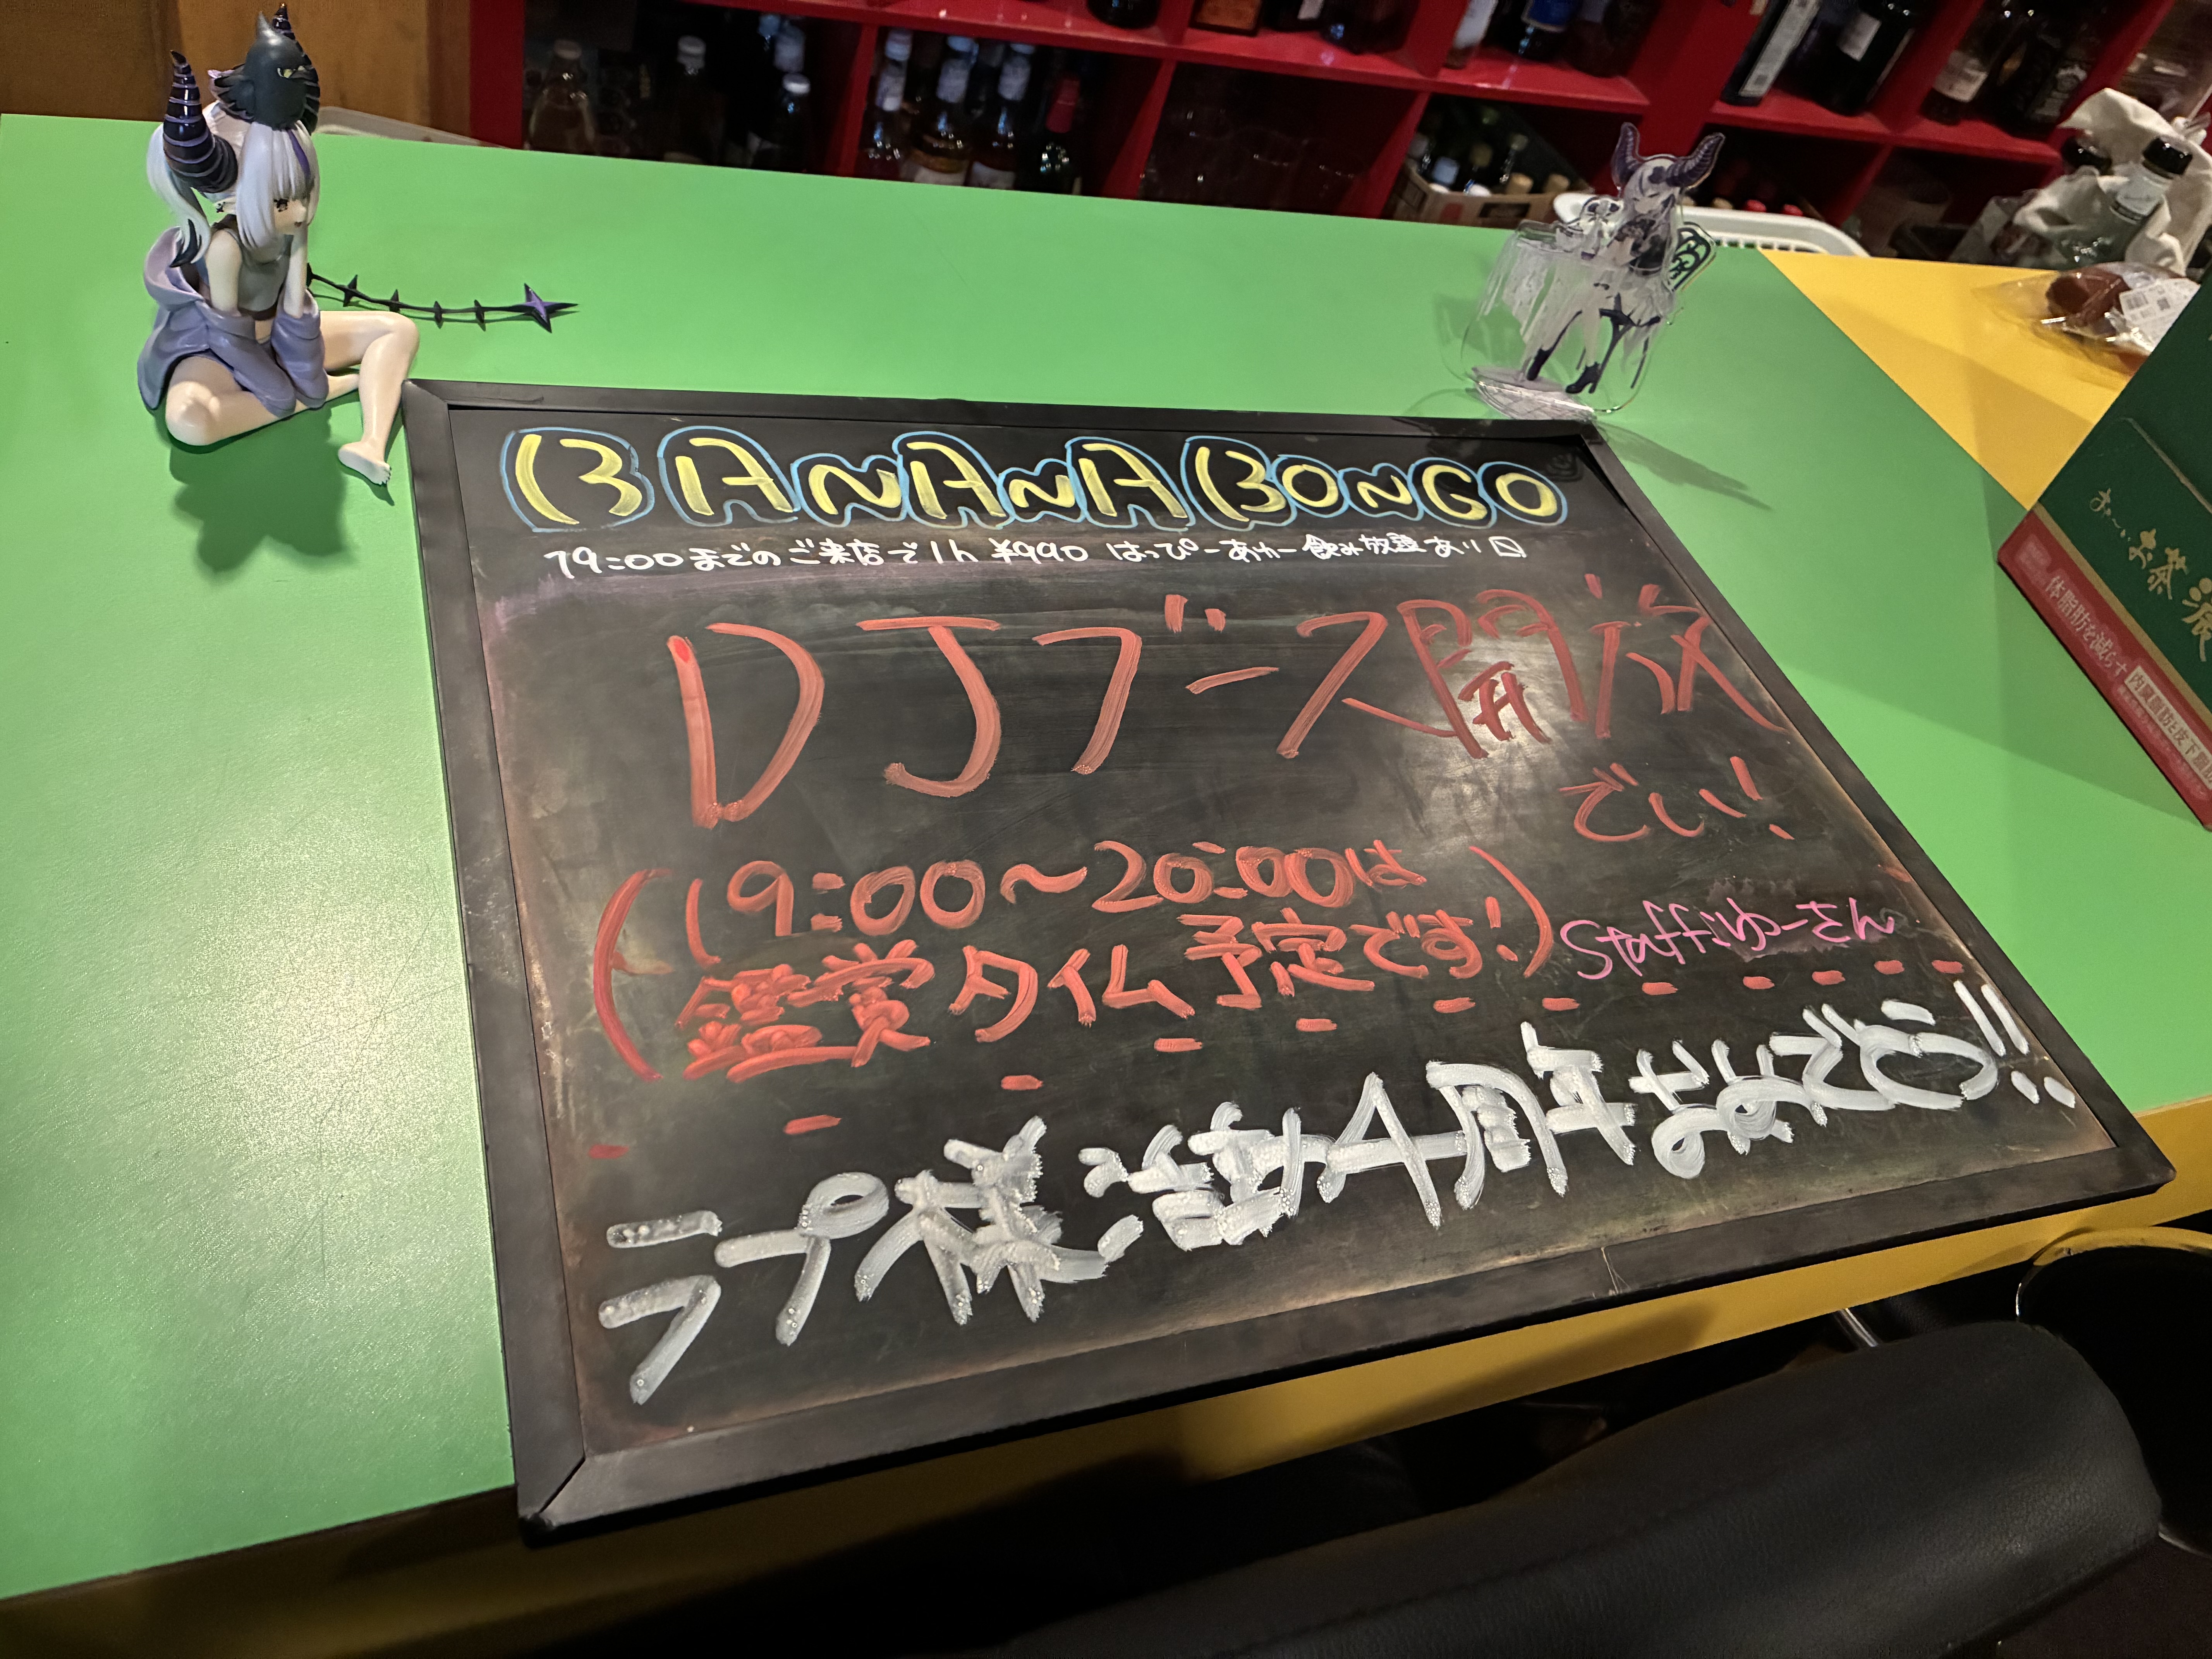 BANANA BONGO
19:00までのご来店で1h ¥990 はっぴーあわー飲み放題あり
DJブース開放
でい!
(19:00〜20:00は
鑑賞タイム予定です!)
Staff:ゆーさん
ラプ様活動4周年おめでとう!!
お〜いお茶 濃
体脂肪を減らす
内臓脂肪と皮下脂